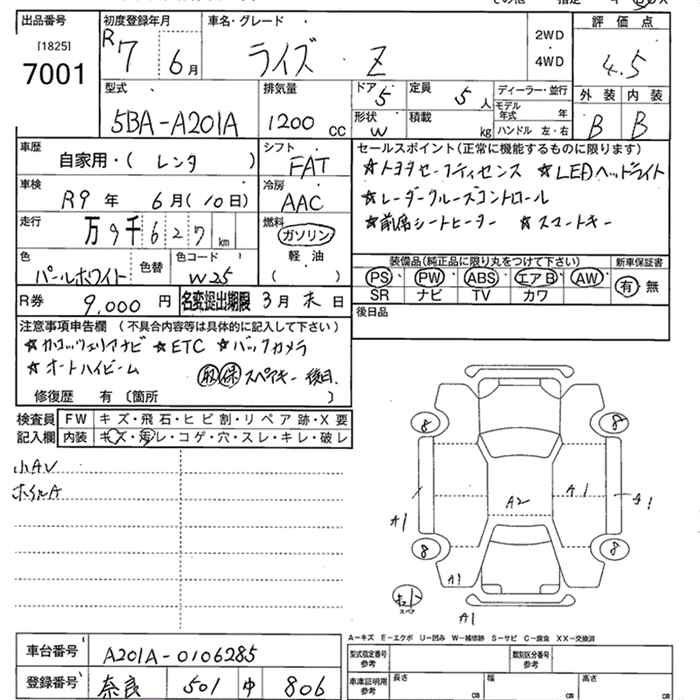 出品番号 初度登録年月 車名・グレード 評価点
[1825]
7001 R7 6月 ライズ Z 2WD ・ 4WD 4.5
型式 排気量 ドア 定員 ディーラー・並行 外装 内装
5BA-A201A 1200 cc 5 5人 モデル年式 年 B B
形状 W 積載 kg ハンドル 左・右
車歴 シフト セールスポイント(正常に機能するものに限ります)
自家用・(レンタ) FAT ☆トヨタセーフティセンス ☆LEDヘッドライト
車検 冷房 ☆レーダークルーズコントロール
R9年 6月(10日) AAC ☆前席シートヒーター ☆スマートキー
走行 燃料
万9千627km ガソリン
色 色替 色コード 軽油 装備品(純正品に限り丸をつけて下さい) 新車保証書
パールホワイト W25 ( ) PS PW ABS エアB AW 有・無
SR ナビ TV カワ
R券 9,000円 名変提出期限 3月末日 後日品
注意事項申告欄(不具合内容等は具体的に記入して下さい)
☆カロッツェリアナビ ☆ETC ☆バックカメラ
☆オートハイビーム 取 保 スペアキー後日
修復歴 有〔箇所 〕
検査員 FW キズ・飛石・ヒビ割・リペア跡・X要
記入欄 内装 キズ・汚レ・コゲ・穴・スレ・キレ・破レ
小AU
ホイルA
8 8
A2 A1
A1 A1
8 8
A1
スペア
A1
A-キズ E-エクボ U-凹み W-補修跡 S-サビ C-腐食 XX-交換済
車台番号 A201A-0106285 型式指定番号 参考 類別区分番号 参考
登録番号 奈良 501 ゆ 806 車庫証明用 参考 長さ cm 幅 cm 高さ cm